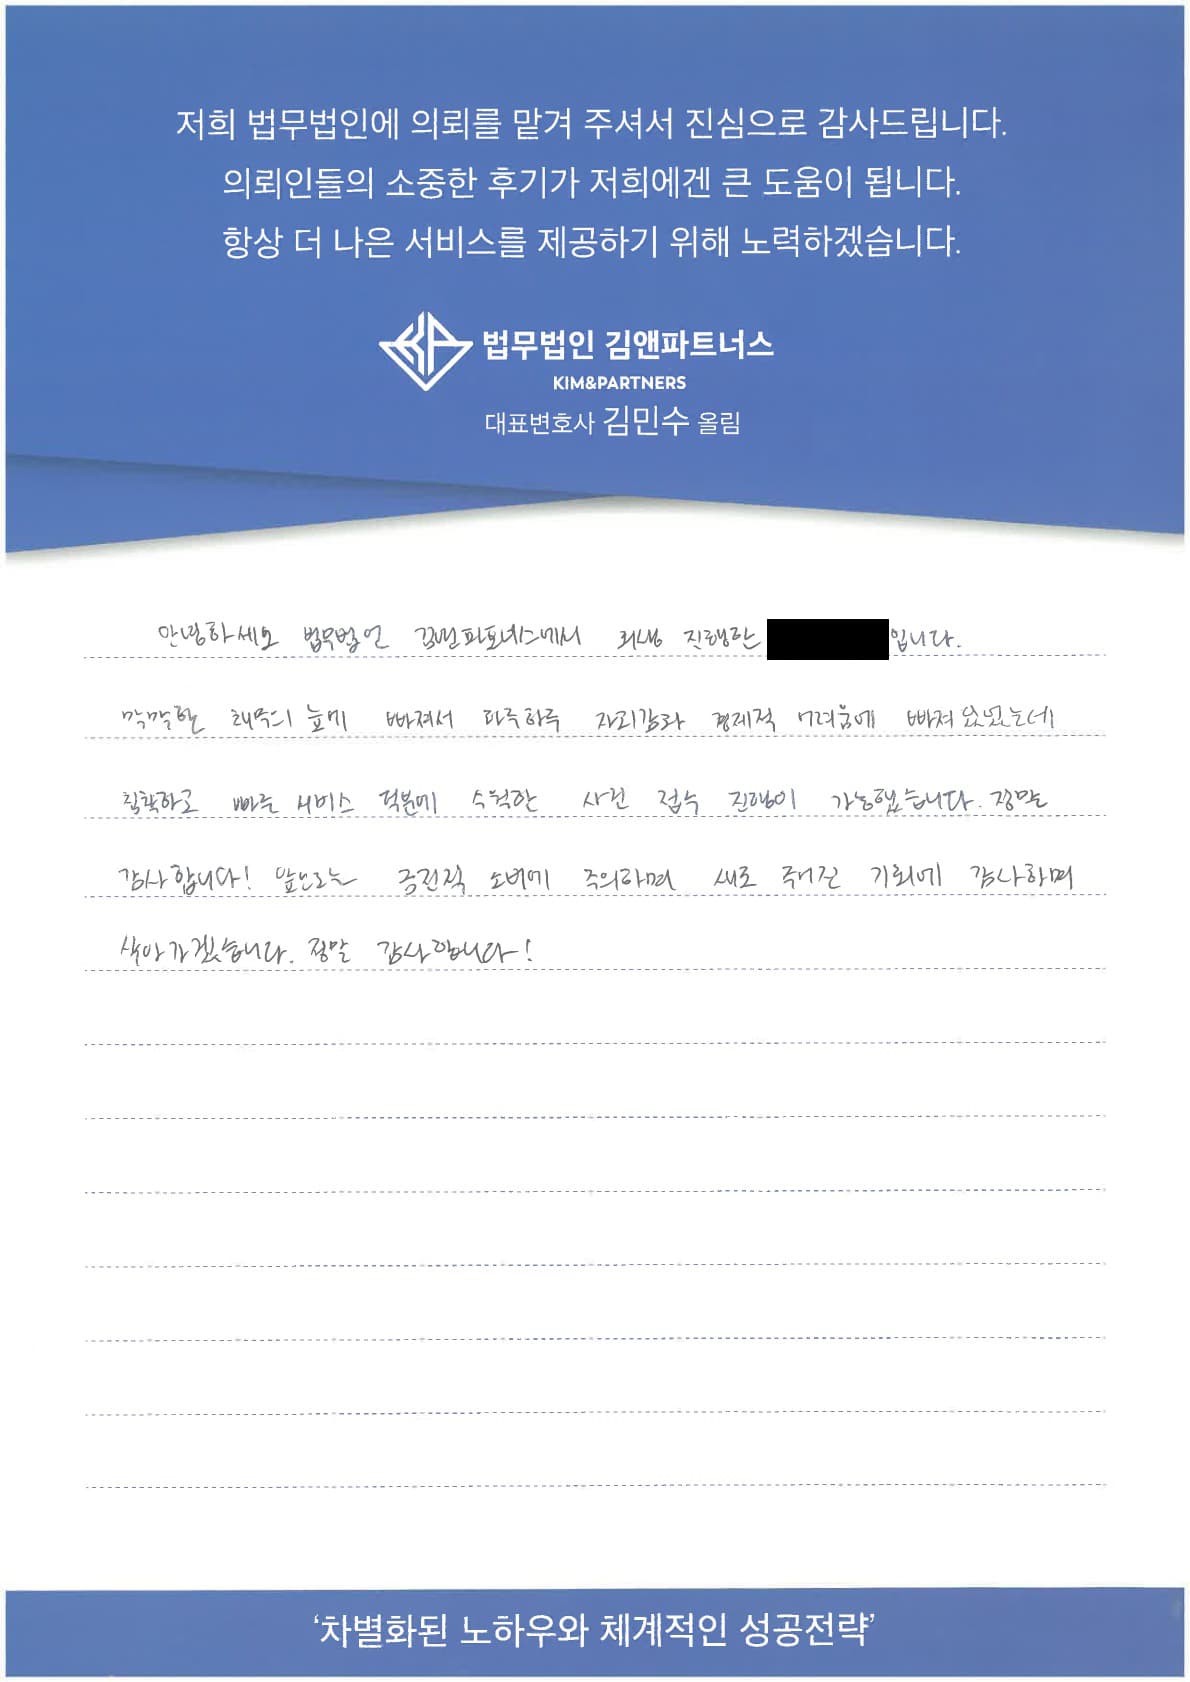 저희 법무법인에 의뢰를 맡겨 주셔서 진심으로 감사드립니다.
의뢰인들의 소중한 후기가 저희에겐 큰 도움이 됩니다.
항상 더 나은 서비스를 제공하기 위해 노력하겠습니다.
법무법인 김앤파트너스
KIM&PARTNERS
대표변호사 김민수 올림
안녕하세요 법무법인 김앤파트너스에서 회생 진행한 입니다.
막막한 채무의 늪에 빠져서 하루하루 자괴감과 경제적 어려움에 빠져 있었는데
침착하고 빠른 서비스 덕분에 수월한 사건 접수 진행이 가능했습니다. 정말
감사합니다! 앞으로는 금전적 소비에 주의하며 새로 주어진 기회에 감사하며
살아가겠습니다. 정말 감사합니다!
'차별화된 노하우와 체계적인 성공전략'